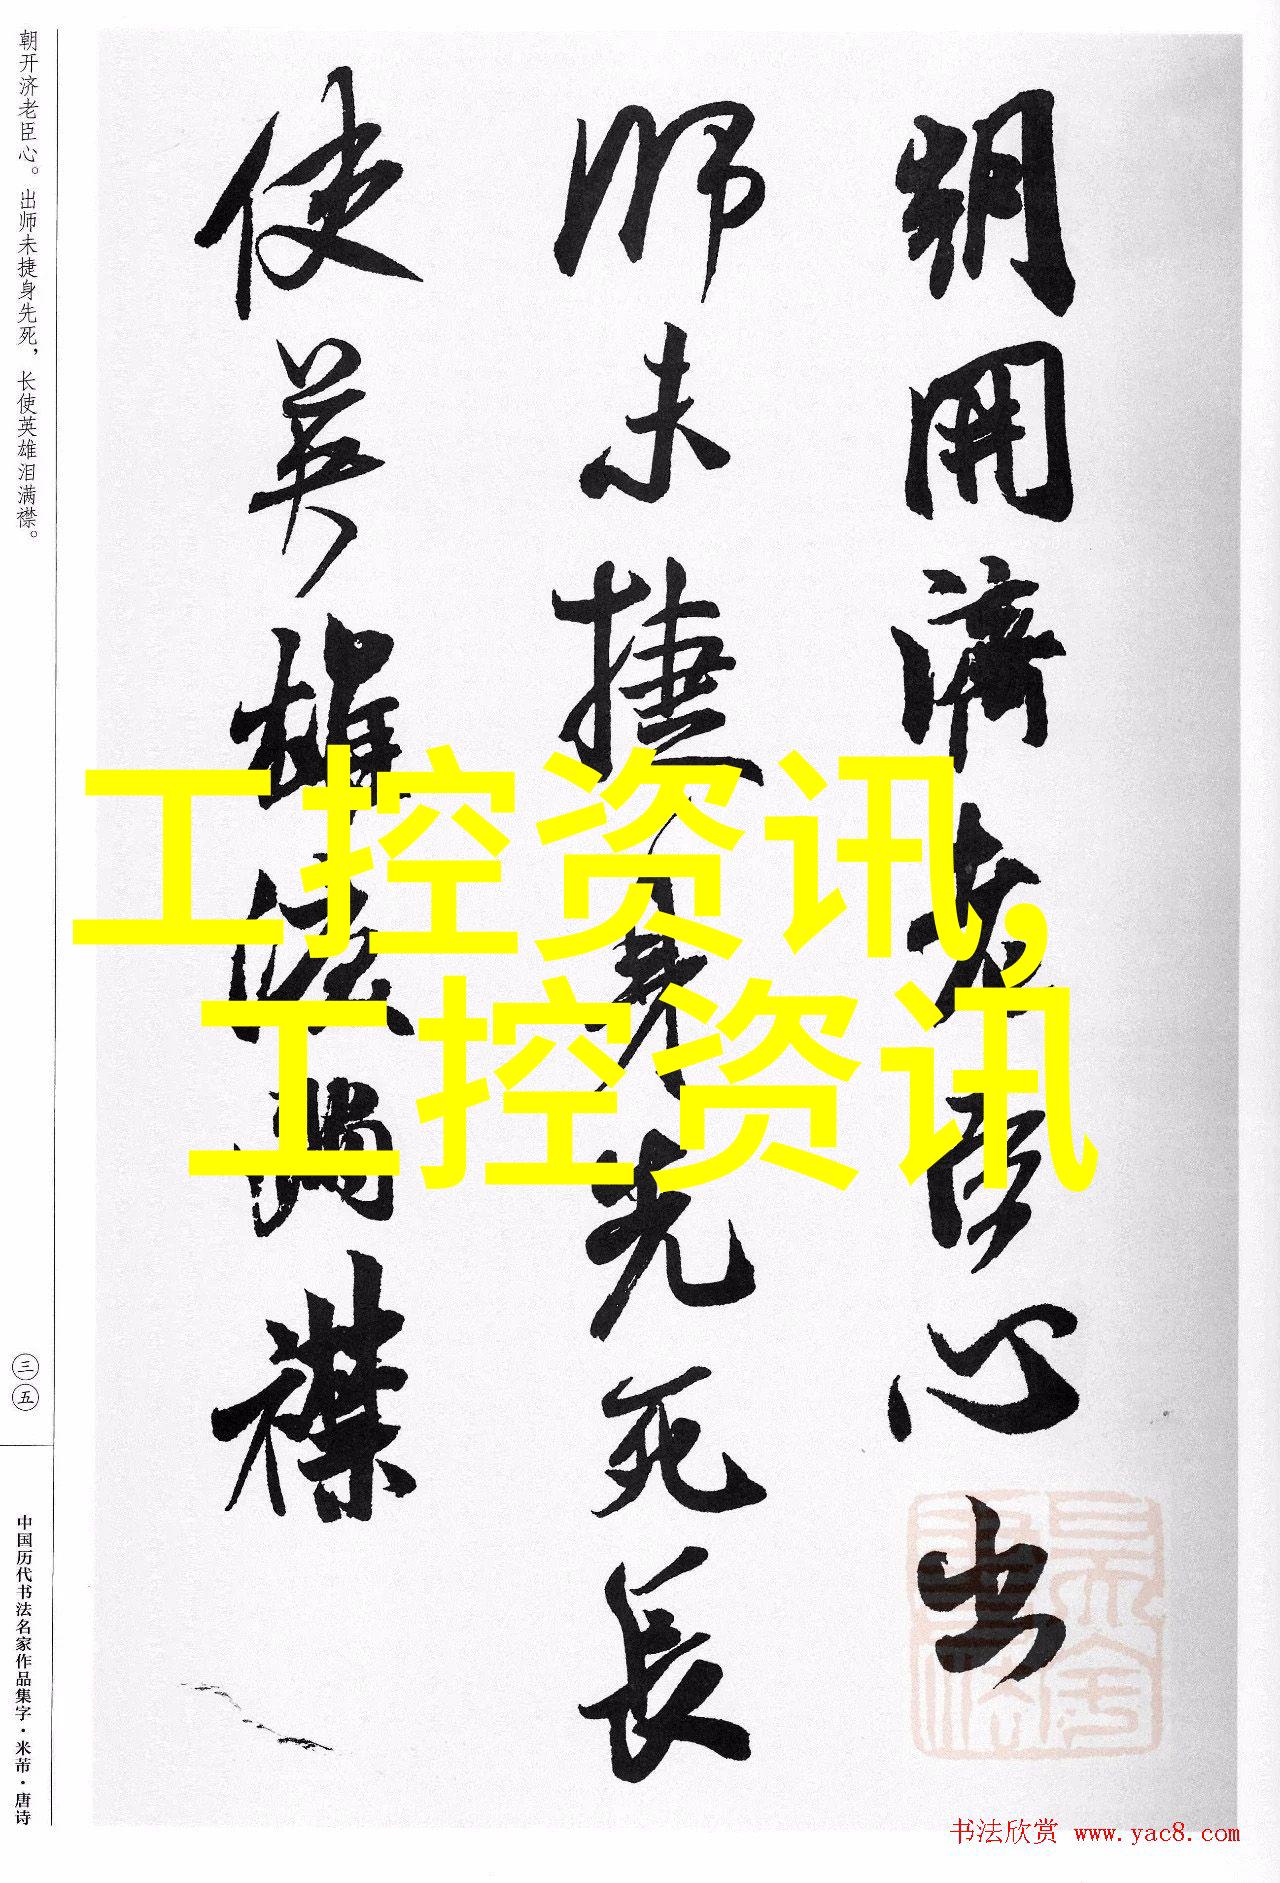 朝开济老臣心。出师未捷身先死，长使英雄泪满襟。
朝開濟老臣心出
师未捷身先死長
使英雄泪满襟
工控资讯,
工控资讯
三五
中国历代书法名家作品集字·米芾·唐诗
书法欣赏 www.yac8.com